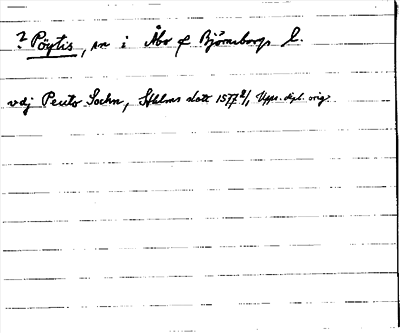 ? Pöytis, sn i Åbo o Björneborgs l.
vdj Pento Sockn, Sthlms slott 1577 2/1, Upps. dipl. orig.